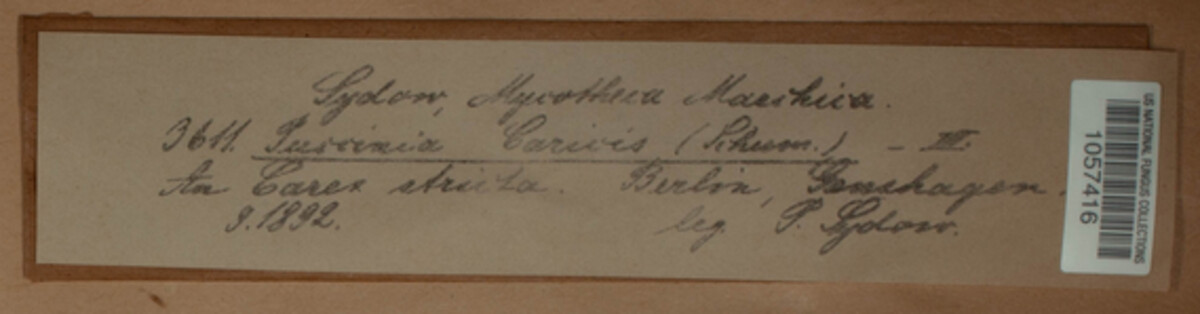 Sydow, Mycotheca Marchica.
3611. Puccinia Caricis (Schum.) - III.
An Carex stricta. Berlin, Genshagen.
9.1892. leg. P. Sydow.
US NATIONAL FUNGUS COLLECTIONS
1057416